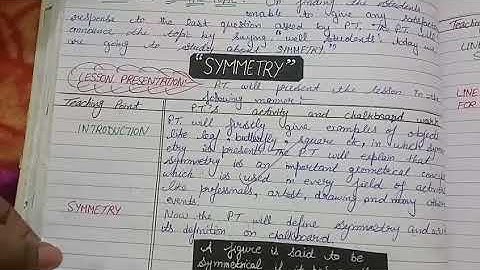 On finding the students
unable to give any satisfactory
response to the last question asked by P.T, the P.T will
announce the topic by saying "well students, today we
are going to study about SYMMETRY"
"SYMMETRY"
LESSON PRESENTATION:
P.T will present the lesson in the
following manner:
Teaching Point
P.T's activity and chalkboard work
INTRODUCTION
P.T will firstly give examples of objects
like leaf, butterfly, square etc, in which symm-
etry is present. The P.T will explain that
symmetry is an important geometrical concept
which is used in every field of activities
like professionals, artist, drawing and many other
events.
SYMMETRY
Now the P.T will define symmetry and write
its definition on chalkboard.
A figure is said to be
symmetrical if it
Teaching
LINE
SYM
LINE
FOR